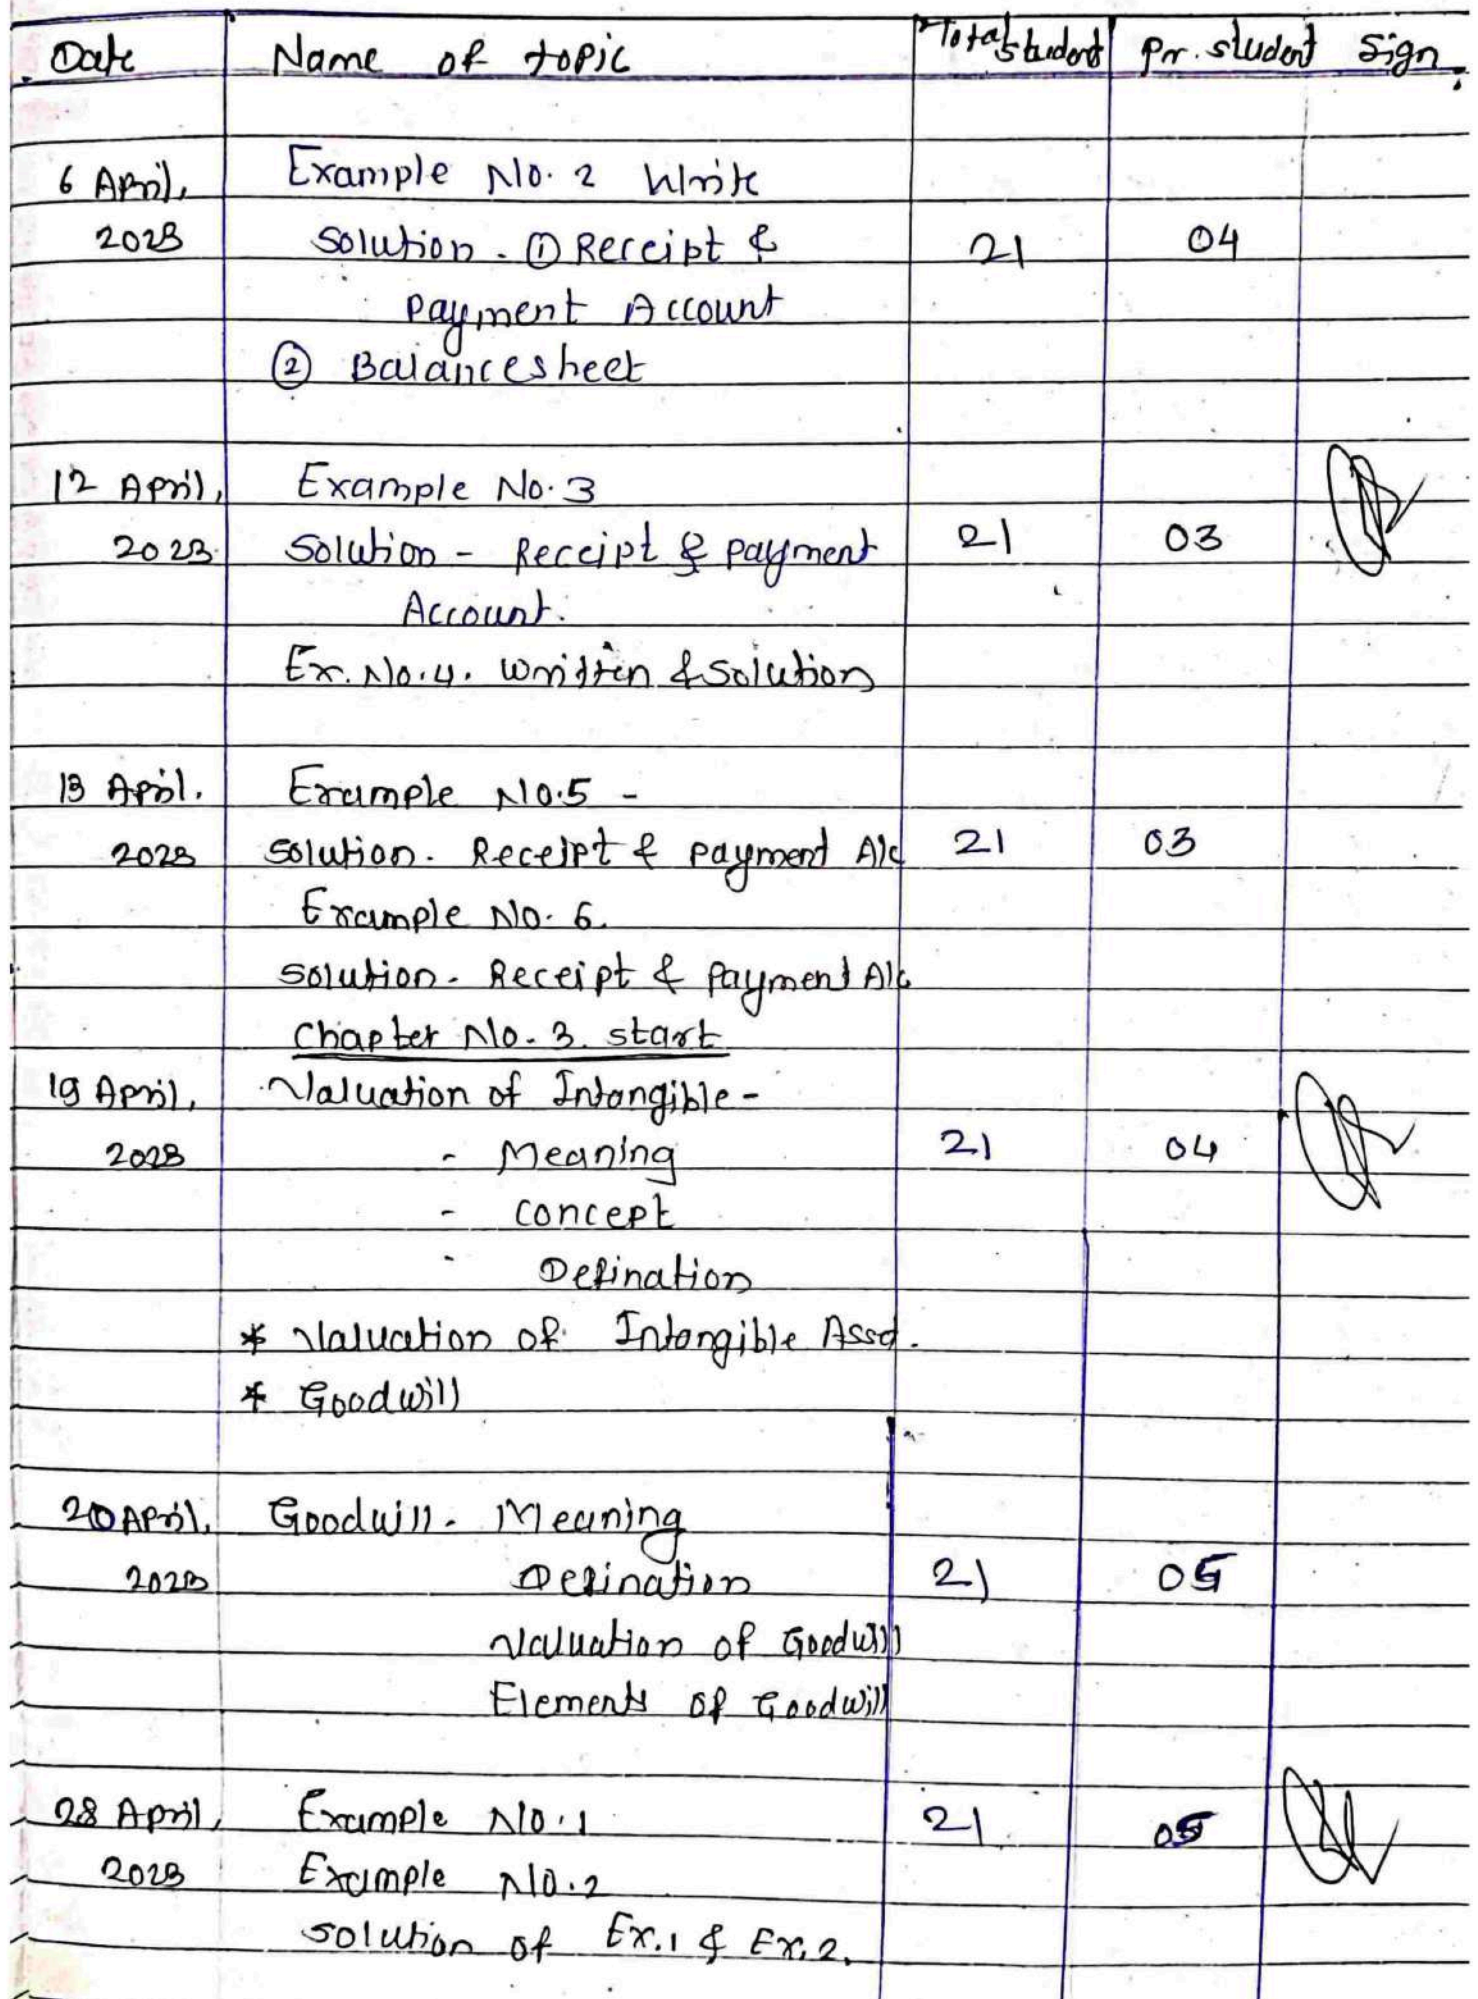 Date Name of topic Total student Pr. student Sign.
6 April, Example No. 2 Write
2023 Solution - ① Receipt & 21 04
Payment Account
② Balancesheet
12 April, Example No. 3
2023 Solution - Receipt & Payment 21 03
Account.
Ex. No. 4. written & Solution
13 April. Example No. 5 -
2023 Solution. Receipt & payment A/c 21 03
Example No. 6.
Solution - Receipt & Payment A/c
Chapter No. 3. start
19 April, Valuation of Intangible -
2023 - Meaning 21 04
- concept
- Defination
* Valuation of Intangible Asset.
* Goodwill
20 April, Goodwill - Meaning
2023 Defination 21 05
Valuation of Goodwill
Elements of Goodwill
28 April, Example No. 1 21 05
2023 Example No. 2
Solution of Ex. 1 & Ex. 2.